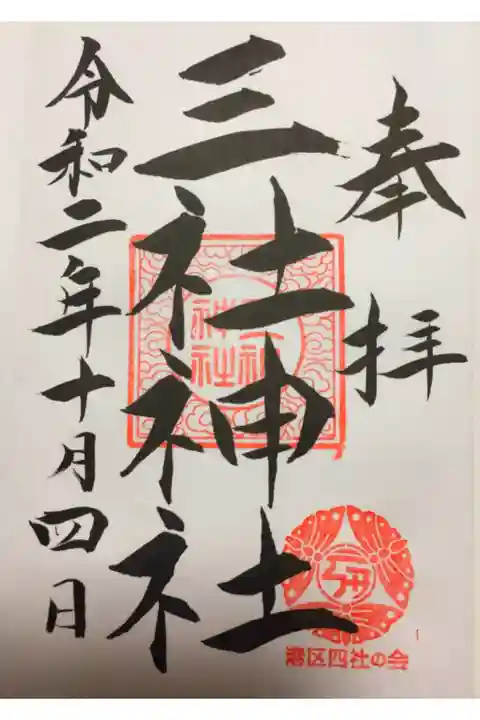 奉拝
三社神社
令和二年十月四日
三社
神社
港区四社の会